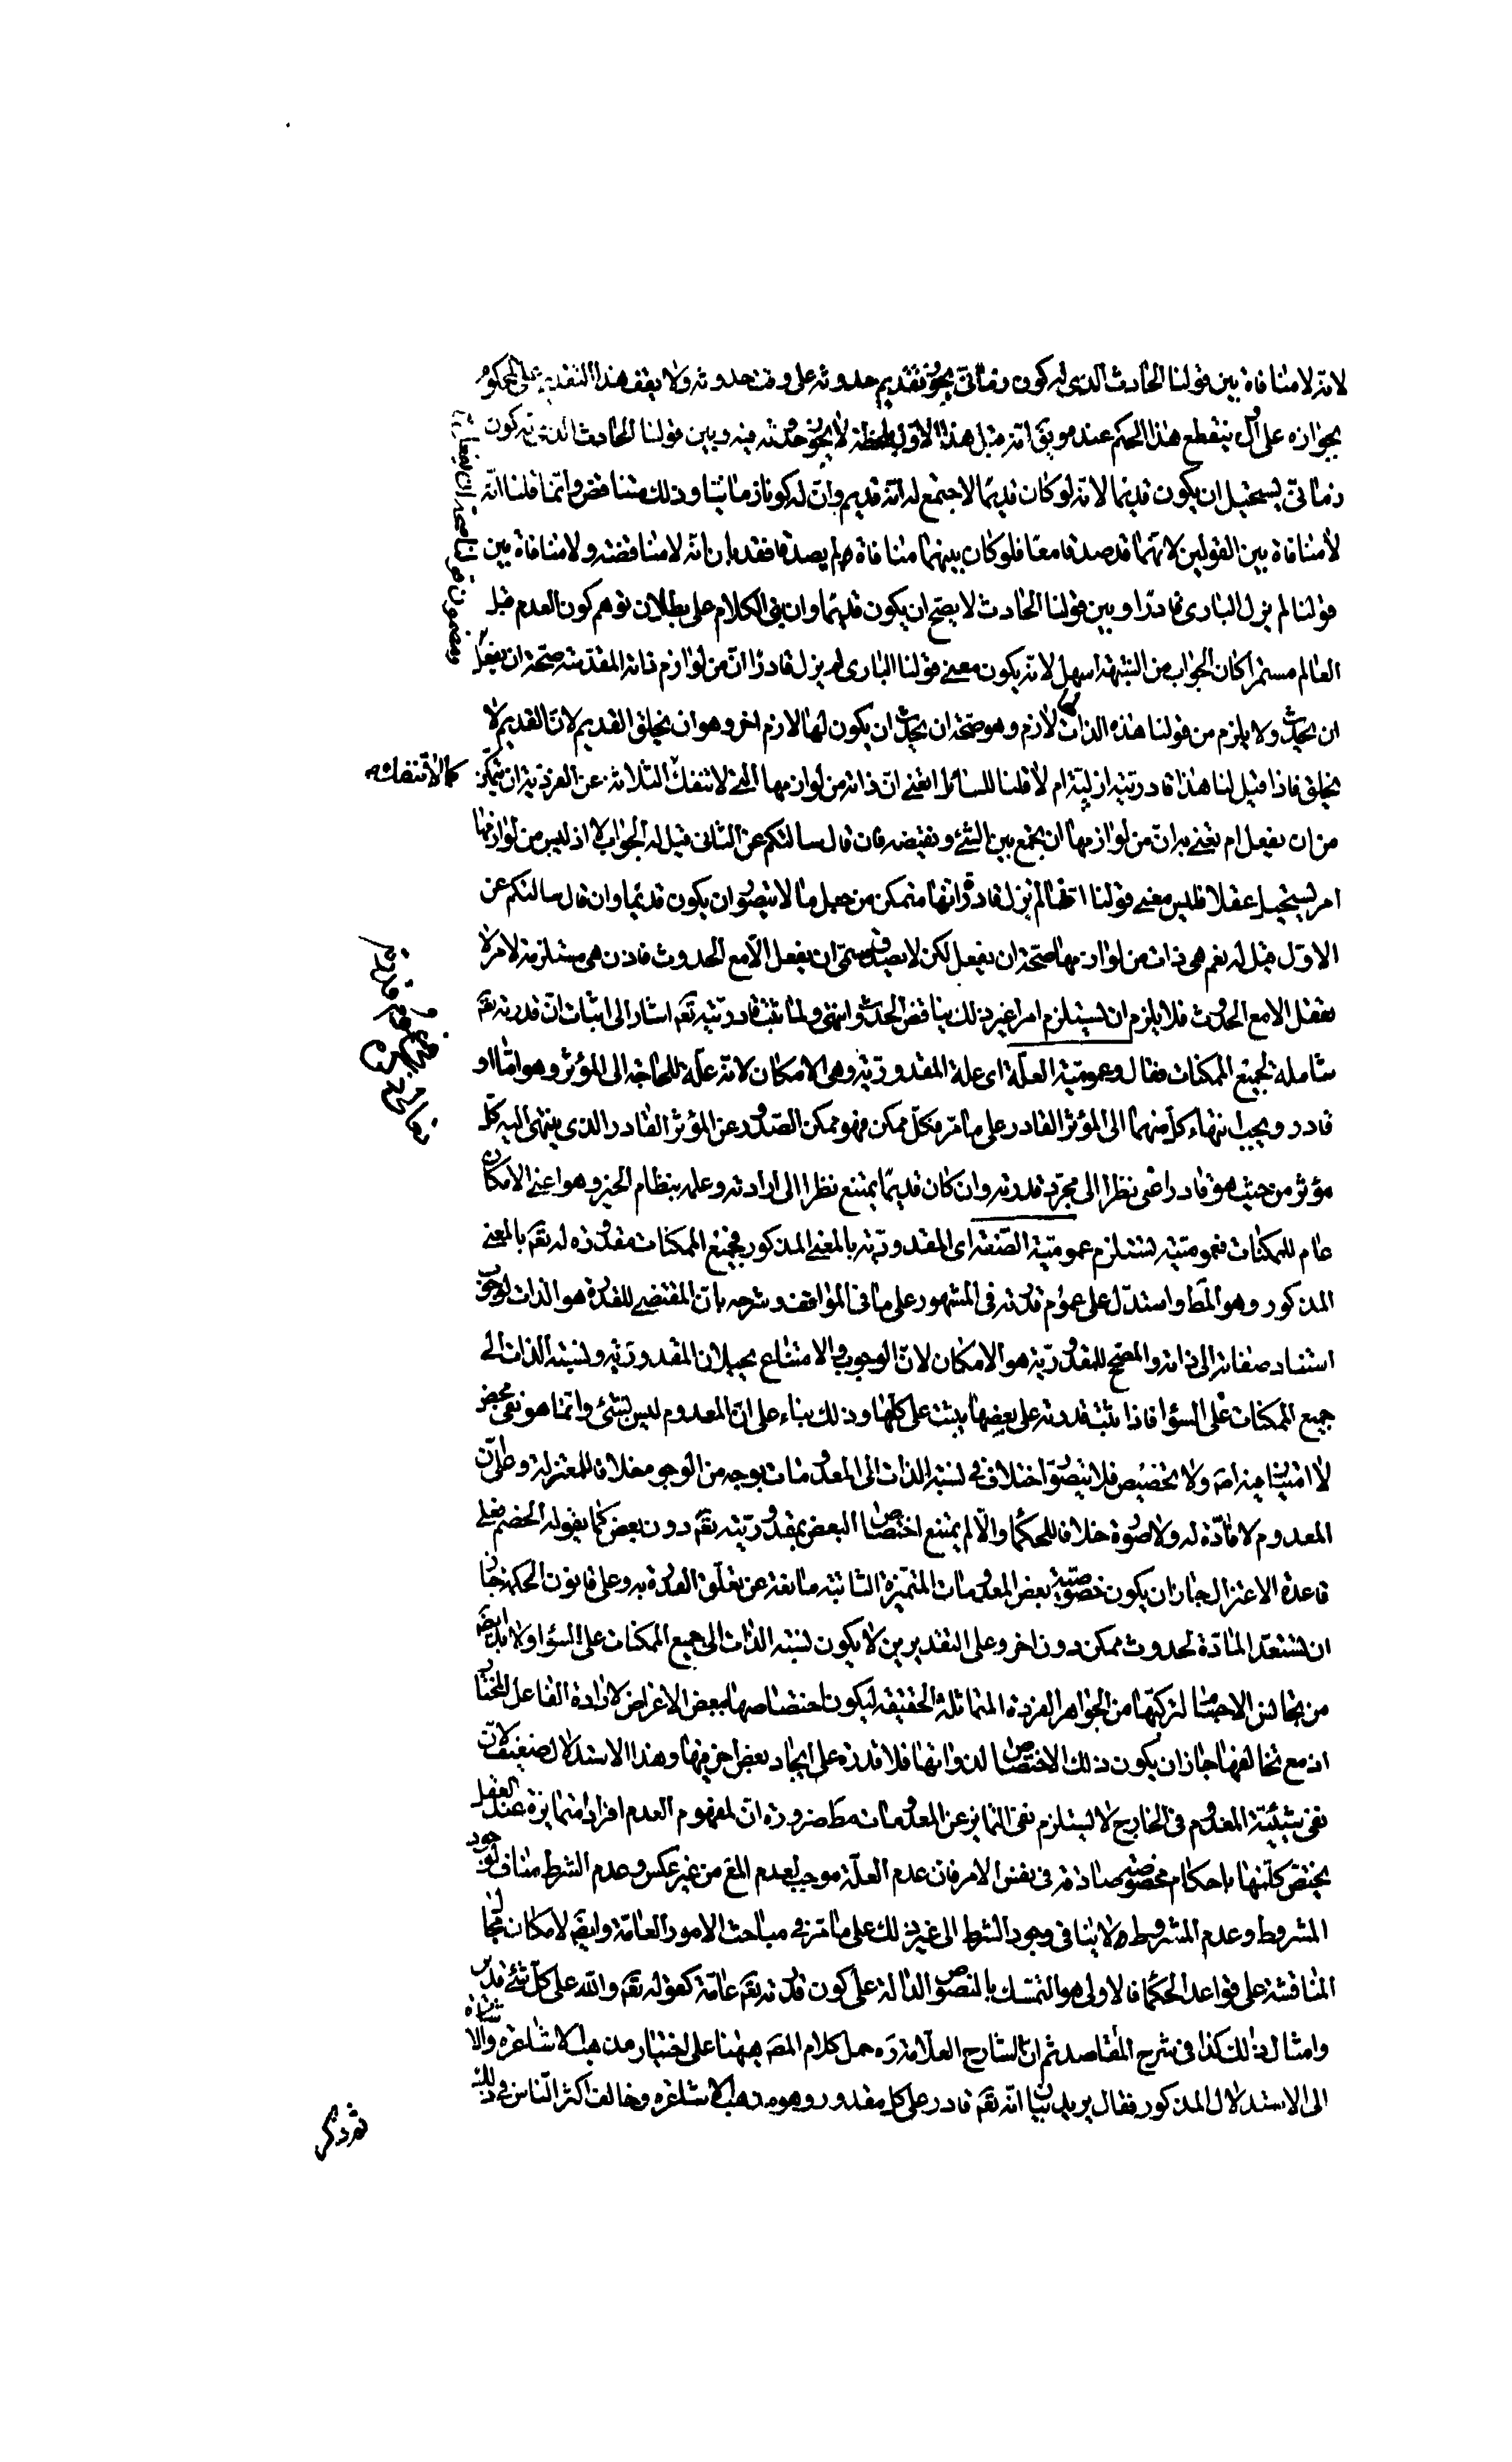 لانه لا منافاة بين قولنا الحادث الذى له كون زمانى يجوز تقديم حدوثه على وقت حدوثه ولا يقف هذا التقدير على المحكوم
بجوازه على ان ينقطع هذا الحكم عند موثق انه قبل هذا الاول بلحظة لا يجوز حدوثه فيه وبين قولنا الحادث الذى له كون
زمانى يستحيل ان يكون قديما لانه لو كان قديما لاجتمع له انه قديم وان له كونا زمانيا وذلك متناقض وانما قلنا انه
لا منافاة بين القولين لانهما قد صدقا معا فلو كان بينهما منافاة لم يصدقا فقد بان انه لا مناقضة ولا منافاة بين
قولنا لم يزل البارى قادرا وبين قولنا الحادث لا يصح ان يكون قديما وان بنى الكلام على بطلان توهم كون العدم قبل
العالم مستمرا كان الجواب من الشبهة اسهل لانه يكون معنى قولنا البارى لم يزل قادرا ان من لوازم ذاته المقدسة صحة ان يفعل
ان يحدث ولا يلزم من قولنا هذه الذات لها لازم وهو صحة ان يحدث ان يكون لها لازم اخر وهو ان يخلق القديم لان القديم لا
يخلق فاذا قيل لنا هذا قادريته ازلية ام لا قلنا للسائل اتعنى ان ذاته من لوازمها التى لا تنفك الثلاثة عن الفردية ان يتمكن
من ان يفعل ام تعنى به ان من لوازمها ان يجمع بين الشئ ونقيضه فان قال سالتكم عن الثانى قيل له الجواب لا اذ ليس من لوازمها
امر يستحيل عقلا فليس معنى قولنا انها لم تزل قادرة انها متمكن من جعل ما لا يتصور ان يكون قديما وان قال سالتكم عن
الاول قيل له نعم هى ذات من لوازمها صحة ان يفعل لكن لا يصدق مسمى ان يفعل الا مع الحدوث فاذن هى مستلزمة لامر لا
يعقل الا مع الحدوث فلا يلزم ان يستلزم امرا غير ذلك يناقض الحدوث انتهى ولما ثبت قادريته تعم اشار الى اثبات ان قدرته تعم
شاملة لجميع الممكنات فقال وعمومية العلة اى علة المقدورية وهى الامكان لانه علة للحاجة الى المؤثر وهو اما او
قادر ويجب انتهاء كل منهما الى المؤثر القادر على ما مر فكل ممكن فهو ممكن الصدور عن المؤثر القادر الذى ينتهى اليه كل
مؤثر من حيث هو قادر اعنى نظرا الى مجرد قدرته وان كان قديما يمتنع نظرا الى ارادته وعلمه بنظام الخير وهو اعنى الامكان
عام للممكنات فعموميته تستلزم عمومية الصفة اى المقدورية بالمعنى المذكور فجميع الممكنات مقدورة له تعم بالمعنى
المذكور وهو المط واستدل على عموم قدرته فى المشهور على ما فى المواقف وشرحه بان المقتضى للقدرة هو الذات لوجوب
استناد صفاته الى ذاته والمصحح للمقدورية هو الامكان لان الوجوب والامتناع يحيلان المقدورية ونسبة الذات الى
جميع الممكنات على السواء فاذا ثبت قدرته على بعضها يثبت على كلها وذلك بناء على ان المعدوم ليس بشئ وانما هو نفى محض
لا امتياز فيه اصلا ولا تخصيص فلا يتصور اختلاف فى نسبة الذات الى المعدومات بوجه من الوجوه خلافا للمعتزلة وعلى ان
المعدوم لا مادة له ولا صورة خلافا للحكماء والا لم يمتنع اختصاص البعض بمقدوريته تعم دون بعض كما يقوله الخصم فعلى
قاعدة الاعتزال جاز ان يكون خصوصية بعض المعدومات المتميزة الثابتة مانعة عن تعلق القدرة به وعلى قانون الحكمة جاز
ان تستعد المادة لحدوث ممكن دون اخر وعلى التقديرين لا يكون نسبة الذات الى جميع الممكنات على السواء ولا بد ايضا
من تجانس الاجسام لتركبها من الجواهر الفردة المتماثلة الحقيقة ليكون اختصاصها ببعض الاعراض لارادة الفاعل المختار
اذ مع تخالفها جاز ان يكون ذلك الاختصاص لذواتها فلا قدرة على ايجاد بعض اخر فيها وهذا الاستدلال ضعيف لان
نفى شيئية المعدوم فى الخارج لا يستلزم نفى التمايز عن المعدومات مط ضرورة ان لمفهوم العدم افرادا متمايزة عند العقل
يختص كل منها باحكام مخصوصة صادقة فى نفس الامر فان عدم العلة موجب لعدم المع من غير عكس وعدم الشرط مناف لوجود
المشروط وعدم المشروط لا ينافى وجود الشرط الى غير ذلك على ما مر فى مباحث الامور العامة وايضا لامكان
المناقشة على قواعد الحكماء فالاولى هو التمسك بالنصوص الدالة على كون قدرته تعم عامة كقوله تعم والله على كل شئ قدير
وامثال ذلك كذا فى شرح المقاصد ثم ان الشارح العلامة ره حمل كلام المصنف ههنا على اختيار مذهب الاشاعرة والاشارة
الى الاستدلال المذكور فقال يريد بيان انه تعم قادر على كل مقدور وهو مذهب الاشاعرة وخالف اكثر الناس فى ذلك
كما لا تنفك